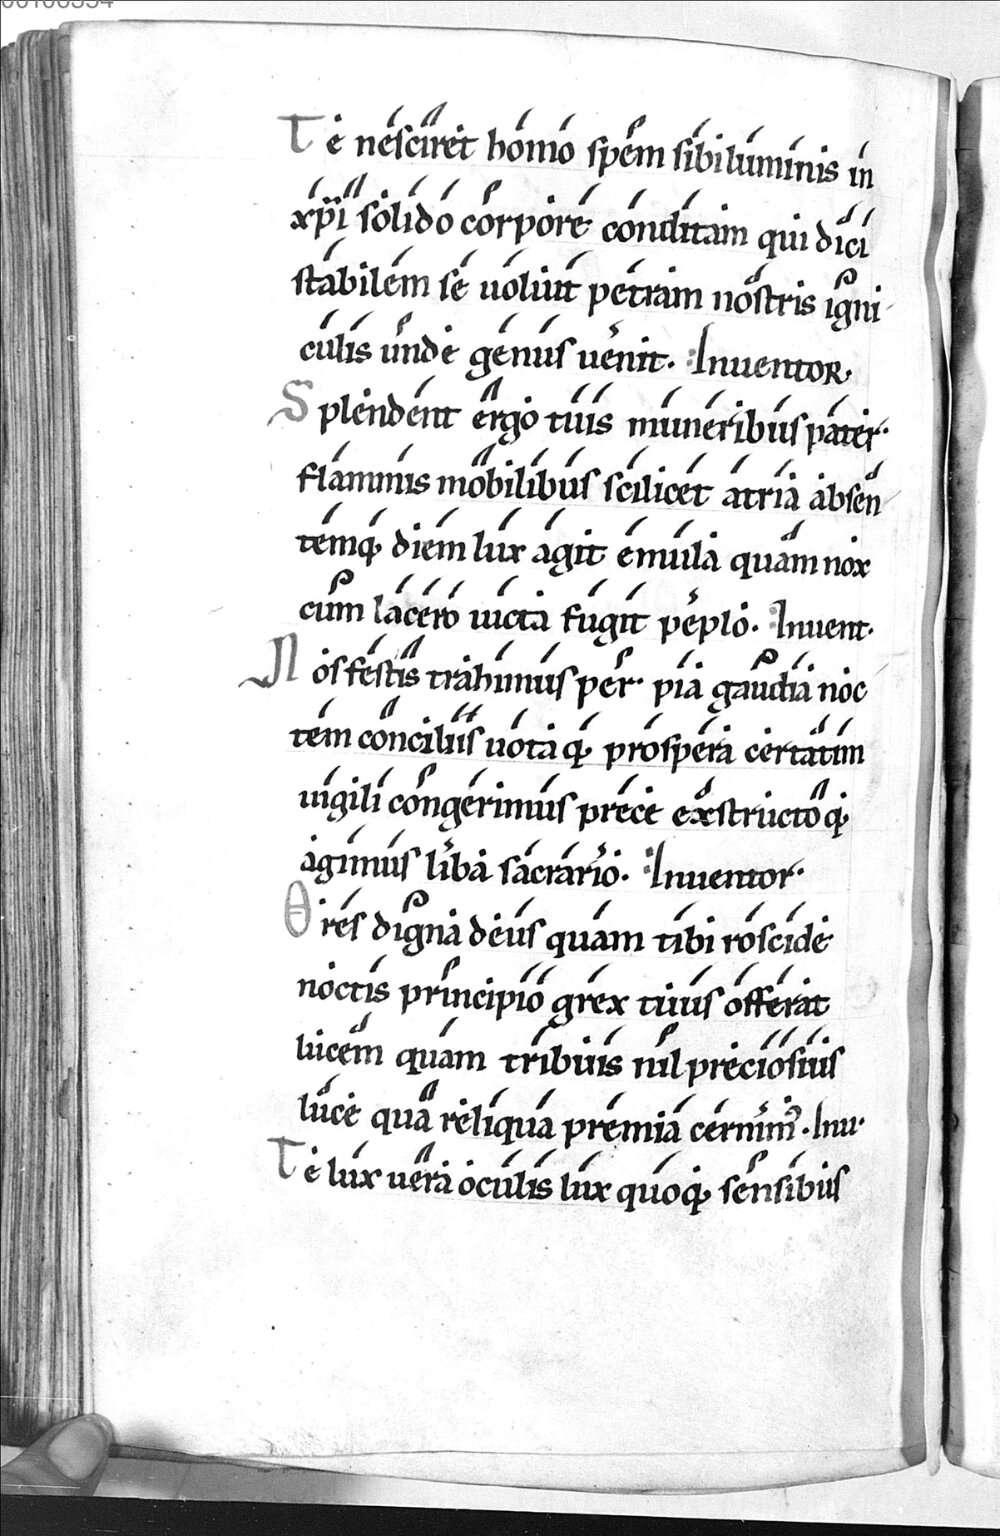 Te nesciret homo spem sibi luminis in
xp̄i solido corpore conditam qui dici
stabilem se uoluit petram nostris igni
culis unde genus uenit. Inuentor.
Splendent ergo tuis muneribus pater.
flammis mobilibus scilicet atria absen
temq; diem lux agit emula quam nox
cum lacero uicta fugit peplo. Inuent.
Nos festis trahimus per pia gaudia noc
tem conciliis uotaq; prospera certatim
uigili congerimus prece exstructoq;
agimus liba sacrario. Inuentor.
O res digna deus quam tibi roscide
noctis principio grex tuus offerat
lucem quam tribuis nil preciosius
luce qua reliqua premia cernim᷒. Inu.
Te lux uera oculis lux quoq; sensibus